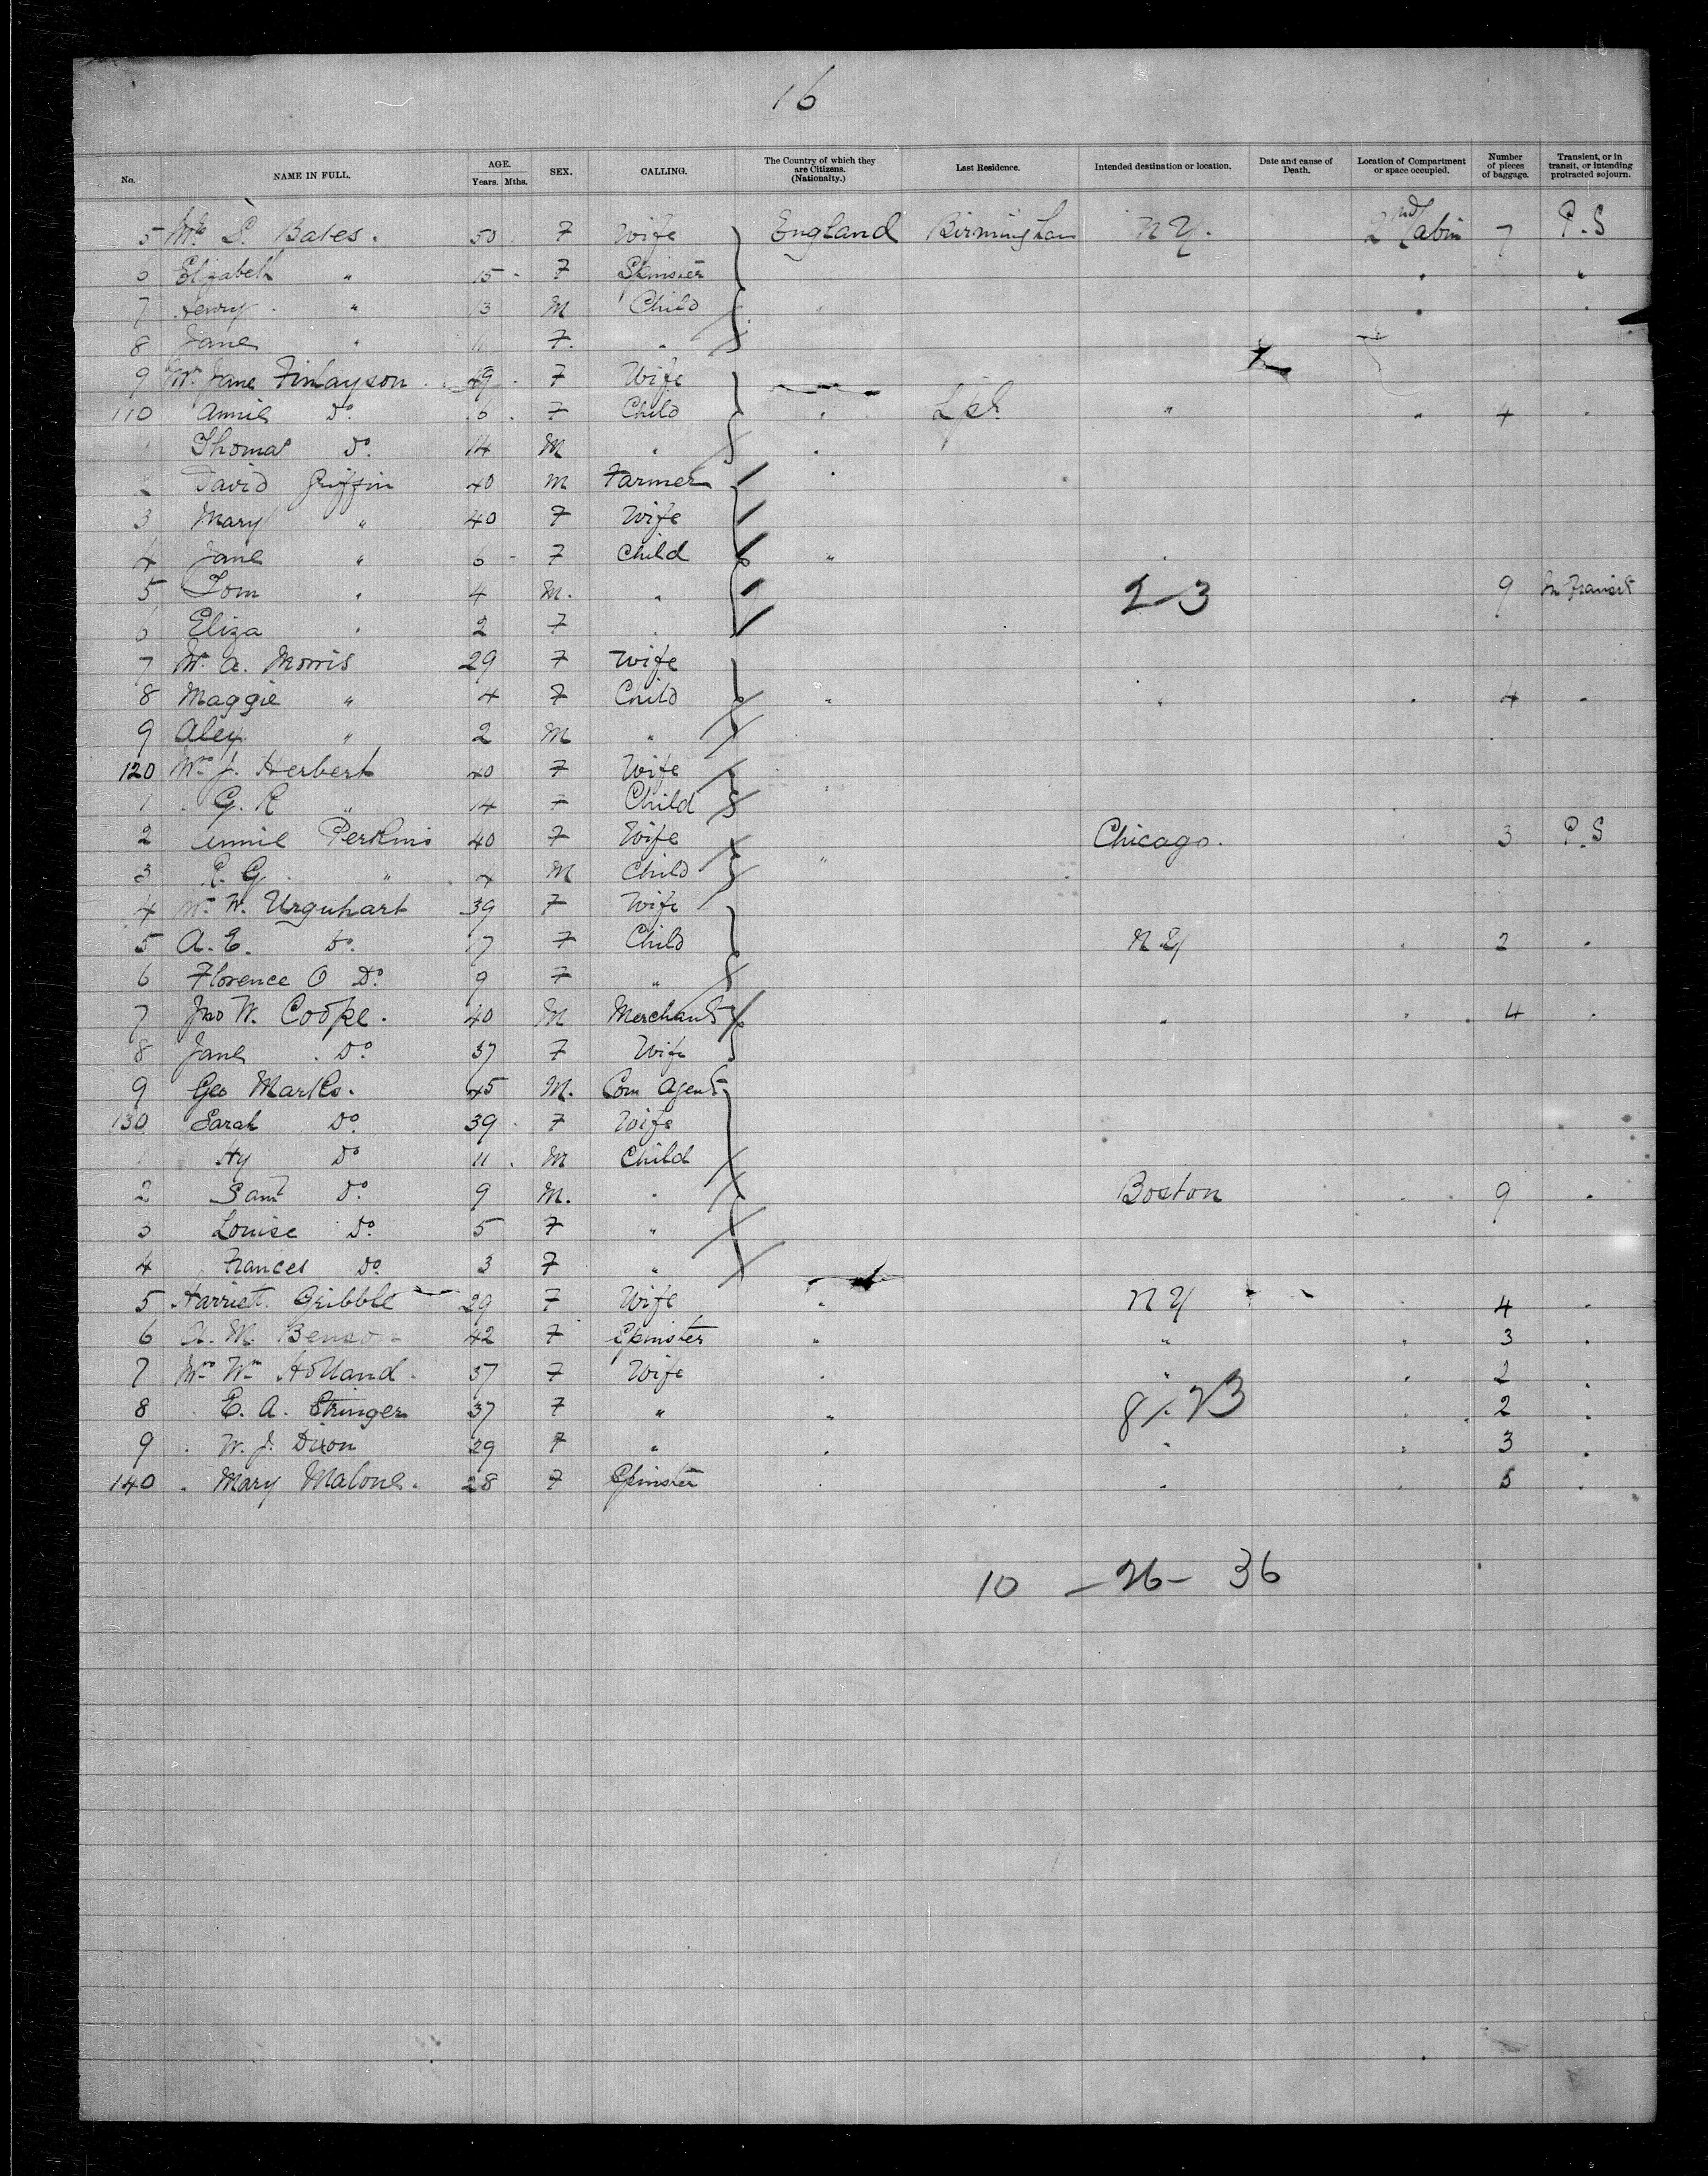 16
No. NAME IN FULL. AGE. Years. Mths. SEX. CALLING. The Country of which they are Citizens. (Nationalty.) Last Residence. Intended destination or location. Date and cause of Death. Location of Compartment or space occupied. Number of pieces of baggage. Transient, or in transit, or intending protracted sojourn.
5 Mrs S. Bates. 50 F Wife England Birmingham N Y. 2nd Cabin 7 P.S
6 Elizabeth " 15 F Spinster " "
7 Henry " 13 M Child " "
8 Jane " 11 F. "
9 Mrs Jane Finlayson 49 F Wife
110 Annie Do 6 F Child " Lpl. " " 4 "
1 Thomas Do. 14 M " "
2 David Griffin 40 M Farmer "
3 Mary " 40 F Wife
4 Jane " 6 F Child " "
5 Tom " 4 M. " 2-3 9 In Transit
6 Eliza " 2 F "
7 Mrs A. Morris 29 F Wife
8 Maggie " 4 F Child " " " 4 "
9 Alex. " 2 M "
120 Mrs J. Herbert 40 F Wife "
1 G. R " 14 F Child
2 Annie Perkins 40 F Wife Chicago. " 3 P.S
3 R. G. " 4 M Child "
4 Mrs W. Urquhart 39 F Wife
5 A. E. Do. 17 F Child N Y " 2 "
6 Florence O Do. 9 F "
7 Jno W. Cooke. 40 M Merchant " " 4 "
8 Jane Do. 37 F Wife
9 Geo Marks. 45 M. Com Agent
130 Sarah Do. 39 F Wife
1 Hy Do 11 M Child
2 Saml Do. 9 M. " Boston " 9 "
3 Louise Do. 5 F "
4 Frances Do. 3 F "
5 Harriet Gribble 29 F Wife " N Y " 4 "
6 A. M. Benson 42 F Spinster " " " 3 "
7 Mrs Wm Holland 37 F Wife " " " 2 "
8 " E. A. Stringer 37 F " " " 2 "
9 " W. J. Dixon 29 F " " " " 3 "
140 " Mary Malone. 28 F Spinster " " " 5 "
10 - 26 - 36